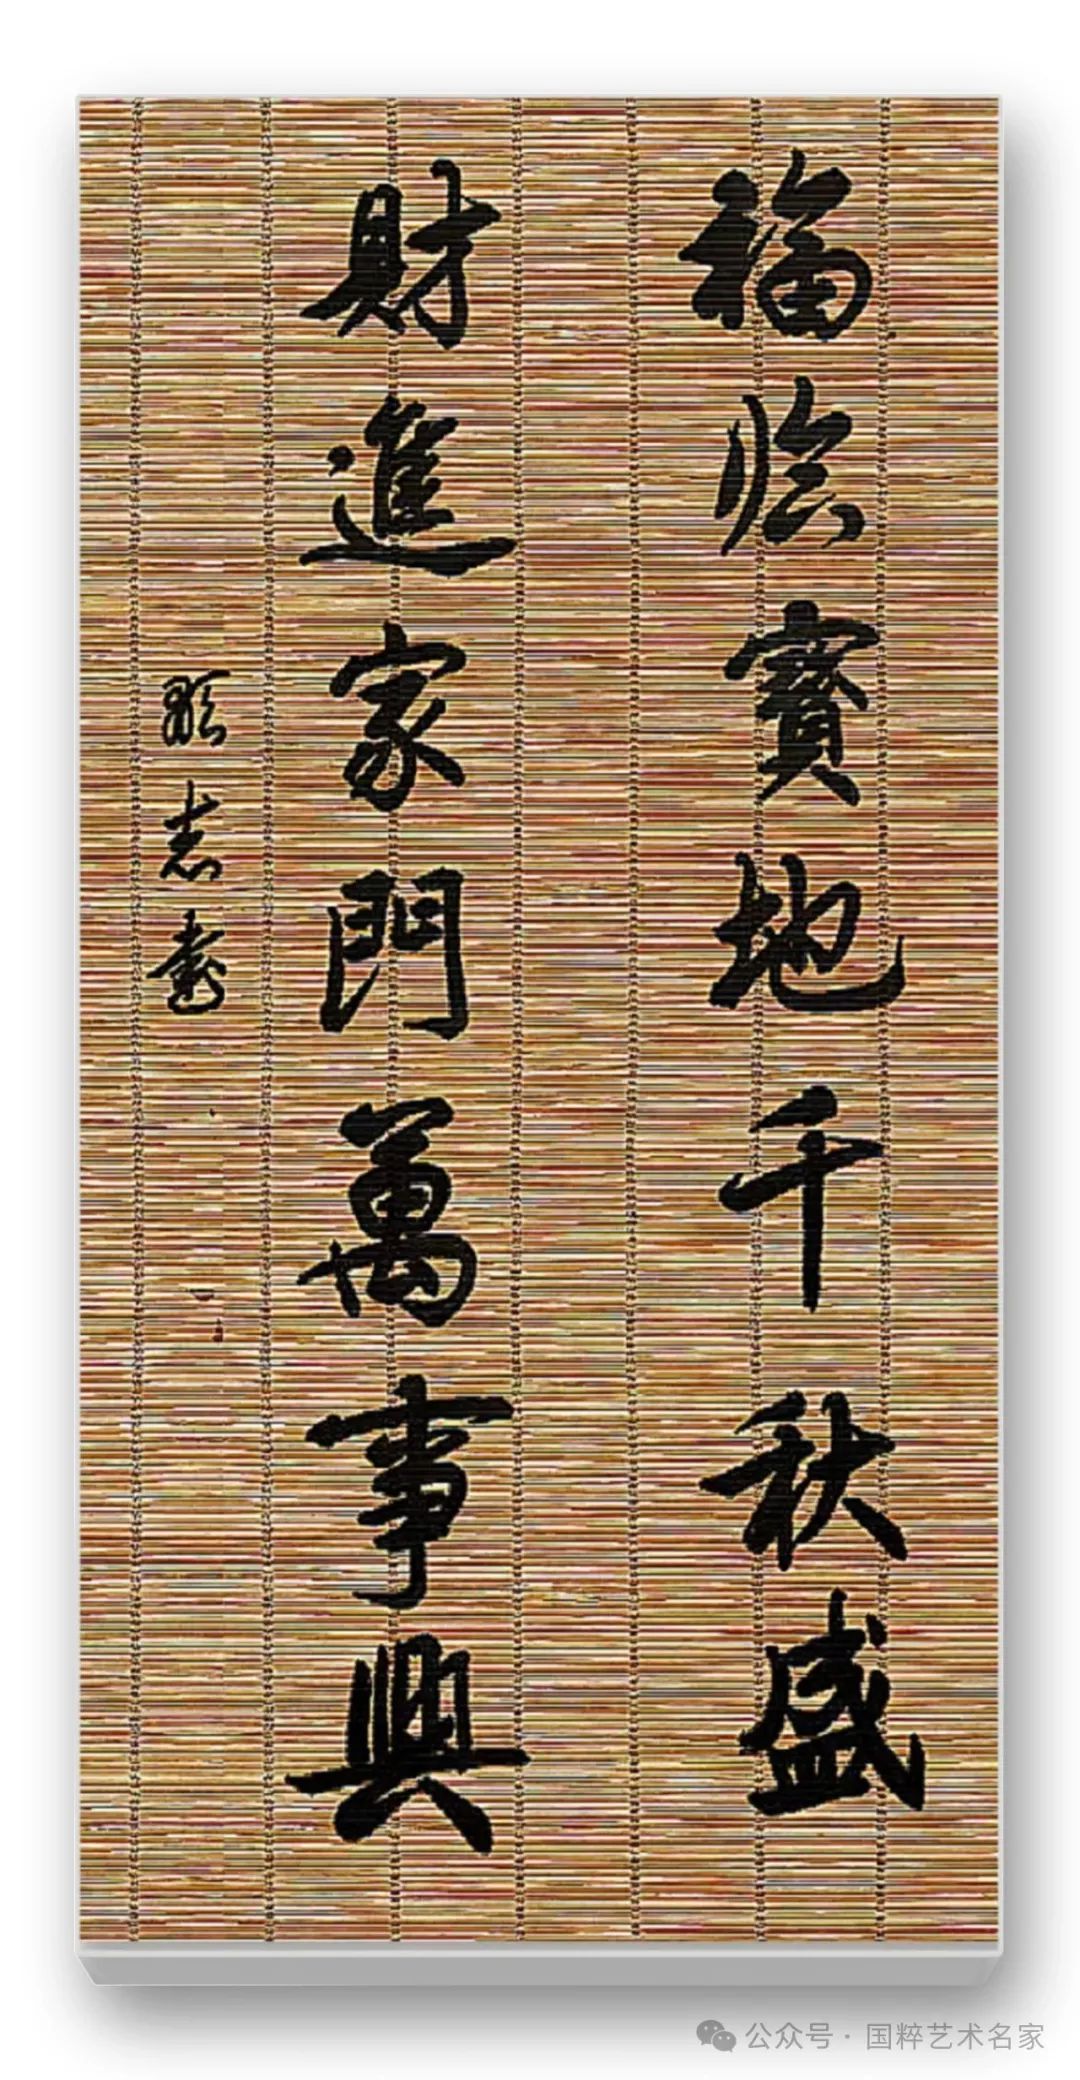 福临寳地千秋盛
財進家門萬事興
志書
公众号 · 国粹艺术名家